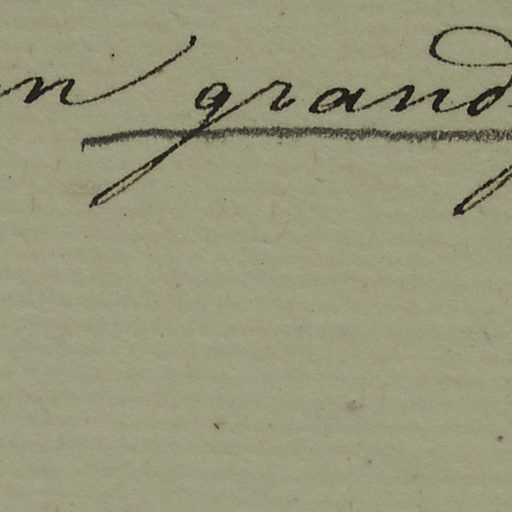 n grand